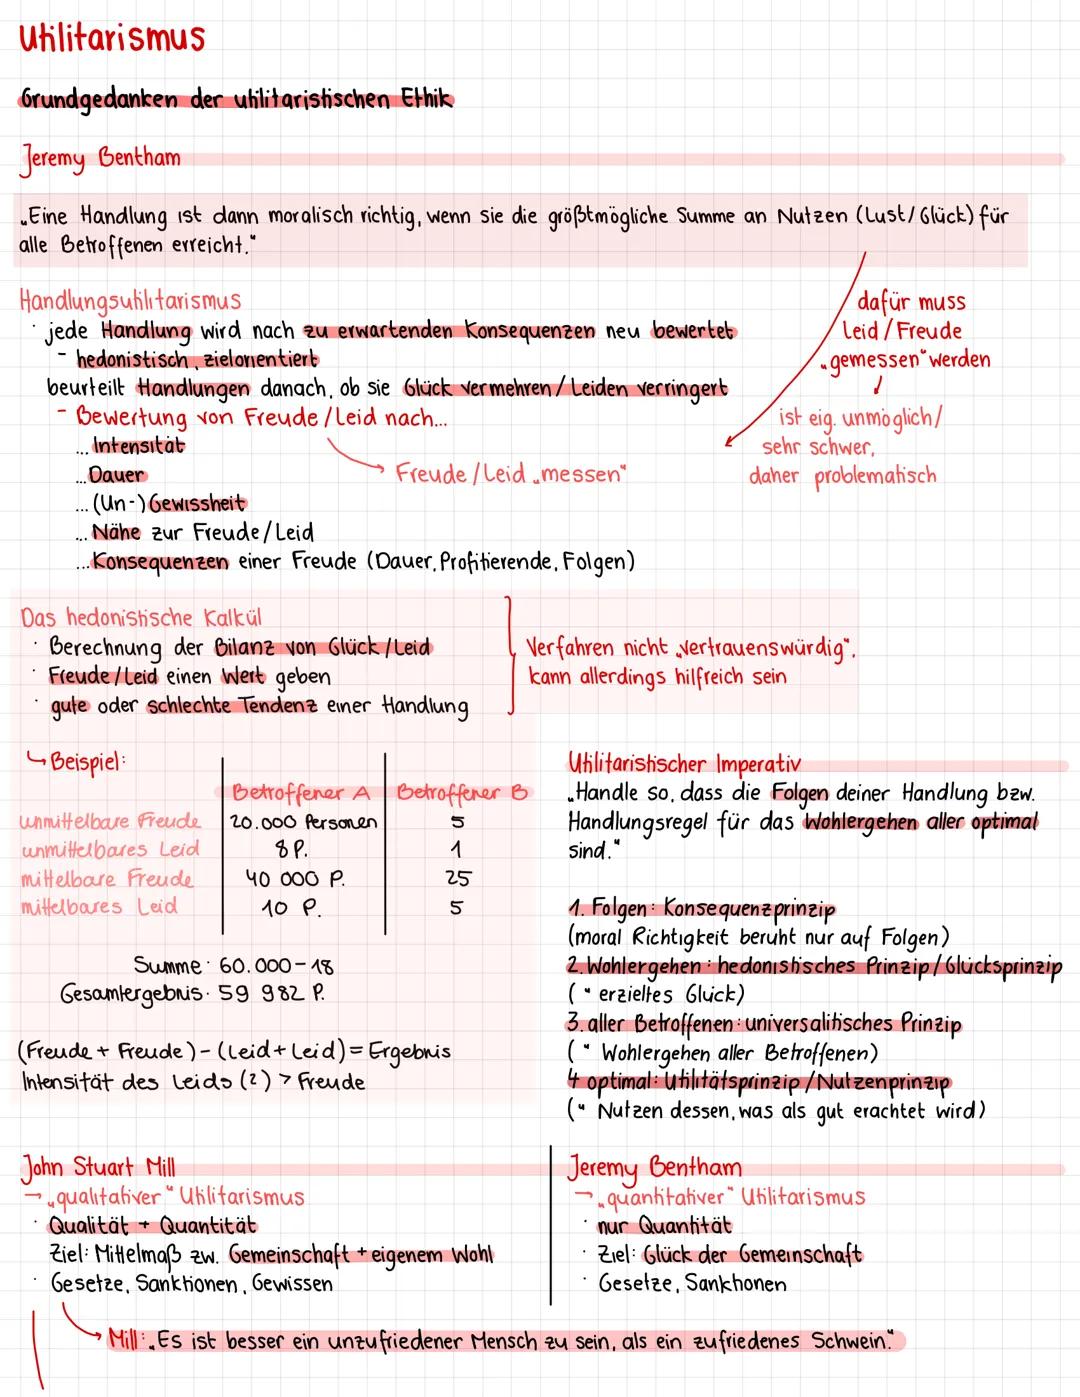 Utilitarismus
Grundgedanken der utilitaristischen Ethik
Jeremy Bentham
„Eine Handlung ist dann moralisch richtig, wenn sie die größtmögliche Summe an Nutzen (Lust/Glück) für
alle Betroffenen erreicht."
Handlungsutilitarismus
· jede Handlung wird nach zu erwartenden Konsequenzen neu bewertet
- hedonistisch, zielorientiert
beurteilt Handlungen danach, ob sie Glück vermehren/Leiden verringert
- Bewertung von Freude/Leid nach...
... Intensität
... Dauer
... (Un-)Gewissheit
... Nähe zur Freude/Leid
... Konsequenzen einer Freude (Dauer, Profitierende, Folgen)
→ Freude/Leid „messen"
dafür muss
Leid/Freude
„gemessen" werden
↓
ist eig. unmöglich/
sehr schwer,
daher problematisch
Das hedonistische Kalkül
· Berechnung der Bilanz von Glück/Leid
· Freude/Leid einen Wert geben
· gute oder schlechte Tendenz einer Handlung
Verfahren nicht „vertrauenswürdig",
kann allerdings hilfreich sein
↳ Beispiel:
Betroffener A Betroffener B
unmittelbare Freude 20.000 Personen 5
unmittelbares Leid 8 P. 1
mittelbare Freude 40 000 P. 25
mittelbares Leid 10 P. 5
Summe: 60.000-18
Gesamtergebnis: 59 982 P.
(Freude + Freude) - (Leid + Leid) = Ergebnis
Intensität des Leids (2) > Freude
Utilitaristischer Imperativ
„Handle so, dass die Folgen deiner Handlung bzw.
Handlungsregel für das Wohlergehen aller optimal
sind."
1. Folgen: Konsequenzprinzip
(moral Richtigkeit beruht nur auf Folgen)
2. Wohlergehen: hedonistisches Prinzip/Glücksprinzip
( " erzieltes Glück)
3. aller Betroffenen: universalitisches Prinzip
( " Wohlergehen aller Betroffenen)
4 optimal: Utilitätsprinzip/Nutzenprinzip
( " Nutzen dessen, was als gut erachtet wird)
John Stuart Mill
→ „qualitativer" Utilitarismus
· Qualität + Quantität
Ziel: Mittelmaß zw. Gemeinschaft + eigenem Wohl
· Gesetze, Sanktionen, Gewissen
Jeremy Bentham
→ „quantitativer" Utilitarismus
· nur Quantität
· Ziel: Glück der Gemeinschaft
· Gesetze, Sanktionen
→ Mill: „Es ist besser ein unzufriedener Mensch zu sein, als ein zufriedenes Schwein."